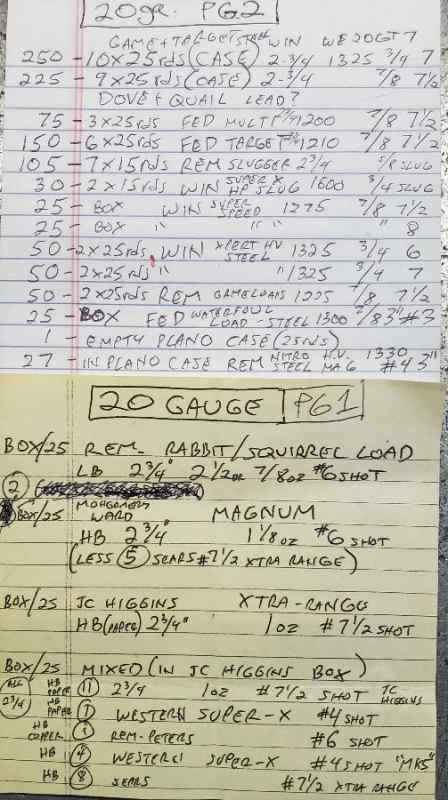 20ga. PG.2
GAME + TARGET STEEL WIN WE20GT 7
250 - 10X25rds (CASE) 2-3/4 1325 3/4 7
225 - 9X25rds (CASE) 2-3/4 7/8 7 1/2
DOVE + QUAIL LEAD?
75 - 3x25rds FED MULTI 1200 7/8 7 1/2
150 - 6x25rds FED TARGET 1210 7/8 7 1/2
105 - 7x15rds REM SLUGGER 2 3/4 5/8 SLUG
30 - 2x15rds WIN SUPER X HP SLUG 1600 3/4 SLUG
25 - BOX WIN SUPER SPEED 1275 7/8 7 1/2
25 - BOX " " " " 8
50 - 2x25rds WIN XPERT HV STEEL 1325 3/4 6
50 - 2x25rds " " 1325 3/4 7
50 - 2x25rds REM GAMELOADS 1225 7/8 7 1/2
25 - BOX FED WATERFOUL LOAD - STEEL 1300 7/8 3" #3
1 - EMPTY PLANO CASE (25NS)
27 - IN PLANO CASE REM NITRO STEEL H.V. MAG 1330 #4 3"
20 GAUGE PG1
BOX/25 REM- RABBIT/SQUIRREL LOAD
LB 2 3/4" 2 1/2 DR 7/8 OZ #6 SHOT
(2)
BOX/25 MONTGOMERY WARD MAGNUM
HB 2 3/4" 1 1/8 oz #6 SHOT
(LESS (5) SEARS #7 1/2 XTRA RANGE)
BOX/25 JC HIGGINS XTRA-RANGE
HB (PAPER) 2 3/4" 1oz #7 1/2 SHOT
BOX/25 MIXED (IN JC HIGGINS BOX)
ALL 2 3/4 HB PAPER (11) 2 3/4 1oz #7 1/2 SHOT JC HIGGINS
HB PAPER (1) WESTERN SUPER-X #4 SHOT
HB COPPER (1) REM-PETERS #6 SHOT
HB (4) WESTERN SUPER-X #4 SHOT "MK5"
HB (8) SEARS #7 1/2 XTRA RANGE